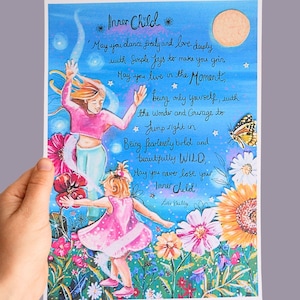 Inner Child
May you dance freely and love deeply
with Simple Joys to make you grin
May you live in the Moment
being only yourself, with
the wonder and Courage to
Jump right in
Being fearlessly bold and
beautifully WILD,
May you never lose your
Inner Child